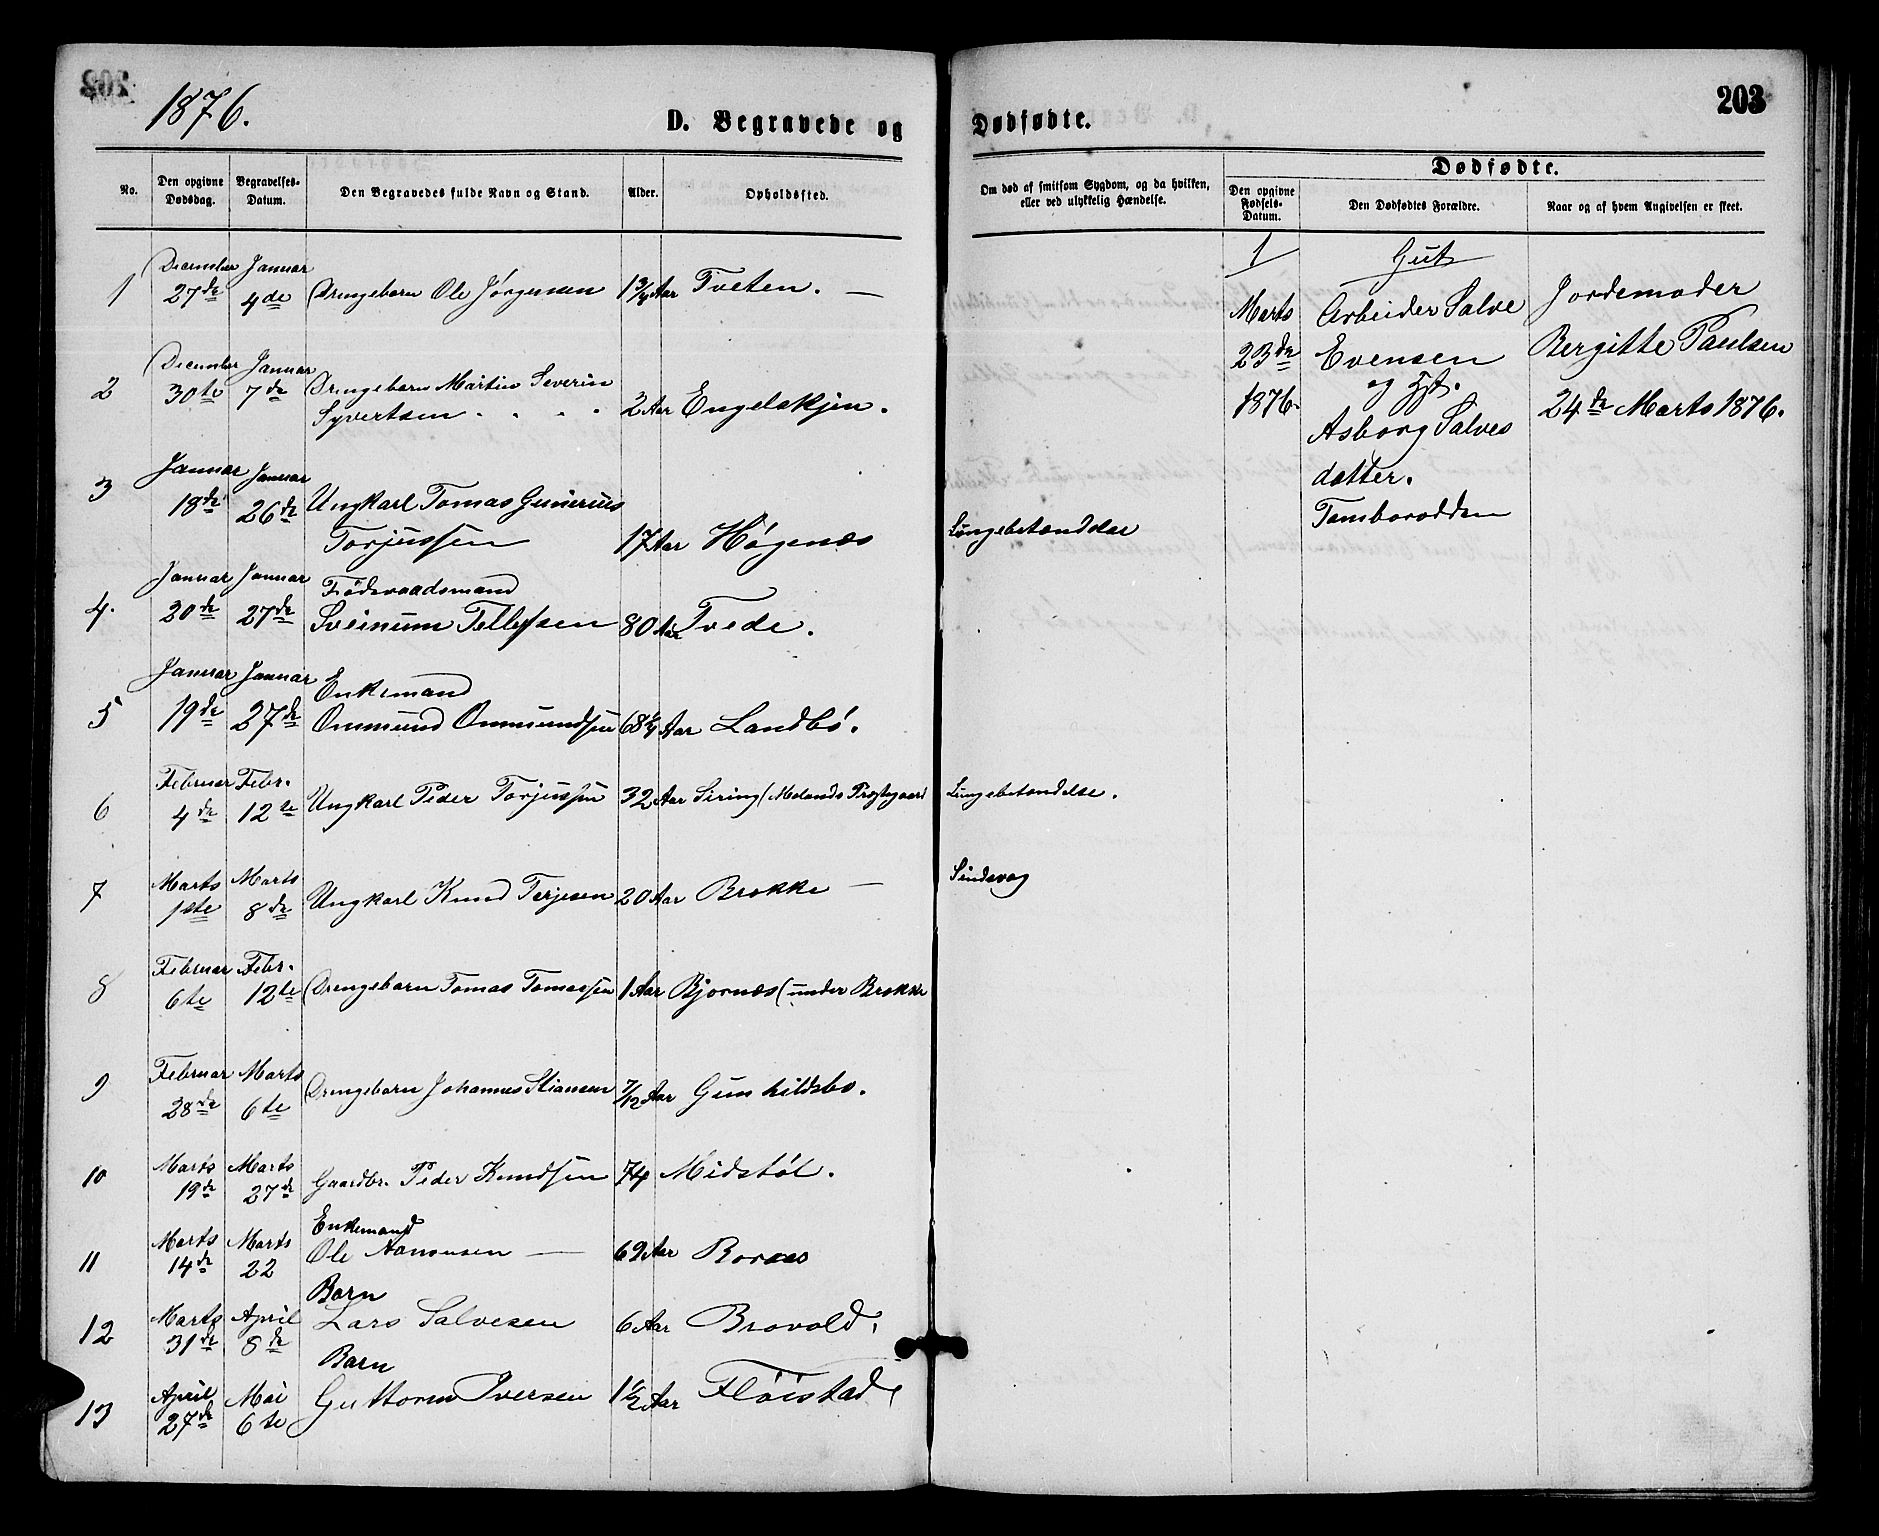 1876.
D. Begravede og
Dødfødte.
203
No.
Den opgivne Dødsdag.
Begravelses-Datum.
Den Begravedes fulde Navn og Stand.
Alder.
Opholdssted.
Om død af smitsom Sygdom, og da hvilken, eller ved ulykkelig Hændelse.
Dødfødte.
Den opgivne Fødsels-Datum.
Den Dødfødtes Forældre.
Naar og af hvem Angivelsen er skeet.
1 December 27de Januar 4de Drengebarn Ole Jørgensen 1 3/4 Aar Tveten. —
2 December 30te Januar 7de Drengebarn Martin Severin
Syvertsen 2 Aar Engelskjøn.
3 Januar 18de Januar 26de Ungkarl Tomas Gunerius
Torjussen 17 Aar Høgenæs Lungebetændelse
4. Januar 20de Januar 27de Føderaadsmand
Sveinum Tellefsen 80 Aar Tvede.
5 Januar 19de Januar 27de Enkemand
Ommund Ommundsen 68 1/4 Aar Landbø.
6 Februar 4de Febr. 12te Ungkarl Peder Torjussen 32 Aar Siring (Molands Præstegaard Lungebetændelse.
7 Marts 1ste Marts 8de Ungkarl Knud Terjesen 20 Aar Brokke — Sindsvag
8 Februar 6te Febr. 12te Drengebarn Tomas Tomassen 1 Aar Bjornæs (under Brokke
9 Februar 28de Marts 6te Drengebarn Johannes Stiansen 7/12 Aar Gunhildsbo.
10 Marts 19de Marts 27de Gaardbr. Peder Knudsen 74 Midstøl.
11 Marts 14de Marts 22 Enkemand
Ole Aanonsen — 69 Aar Boraas
12 Marts 31de April 8de Barn
Lars Salvesen 6 Aar Brovold.
13 April 27de Mai 6te Barn
Guttorm Iversen 1 1/2 Aar Fløistad
1
Gut
Marts 23de 1876.
Arbeider Salve
Evensen
og Hst.
Asborg Salves
datter.
Tamborodden
Jordemoder
Bergitte Paulsen
24de Marts 1876.